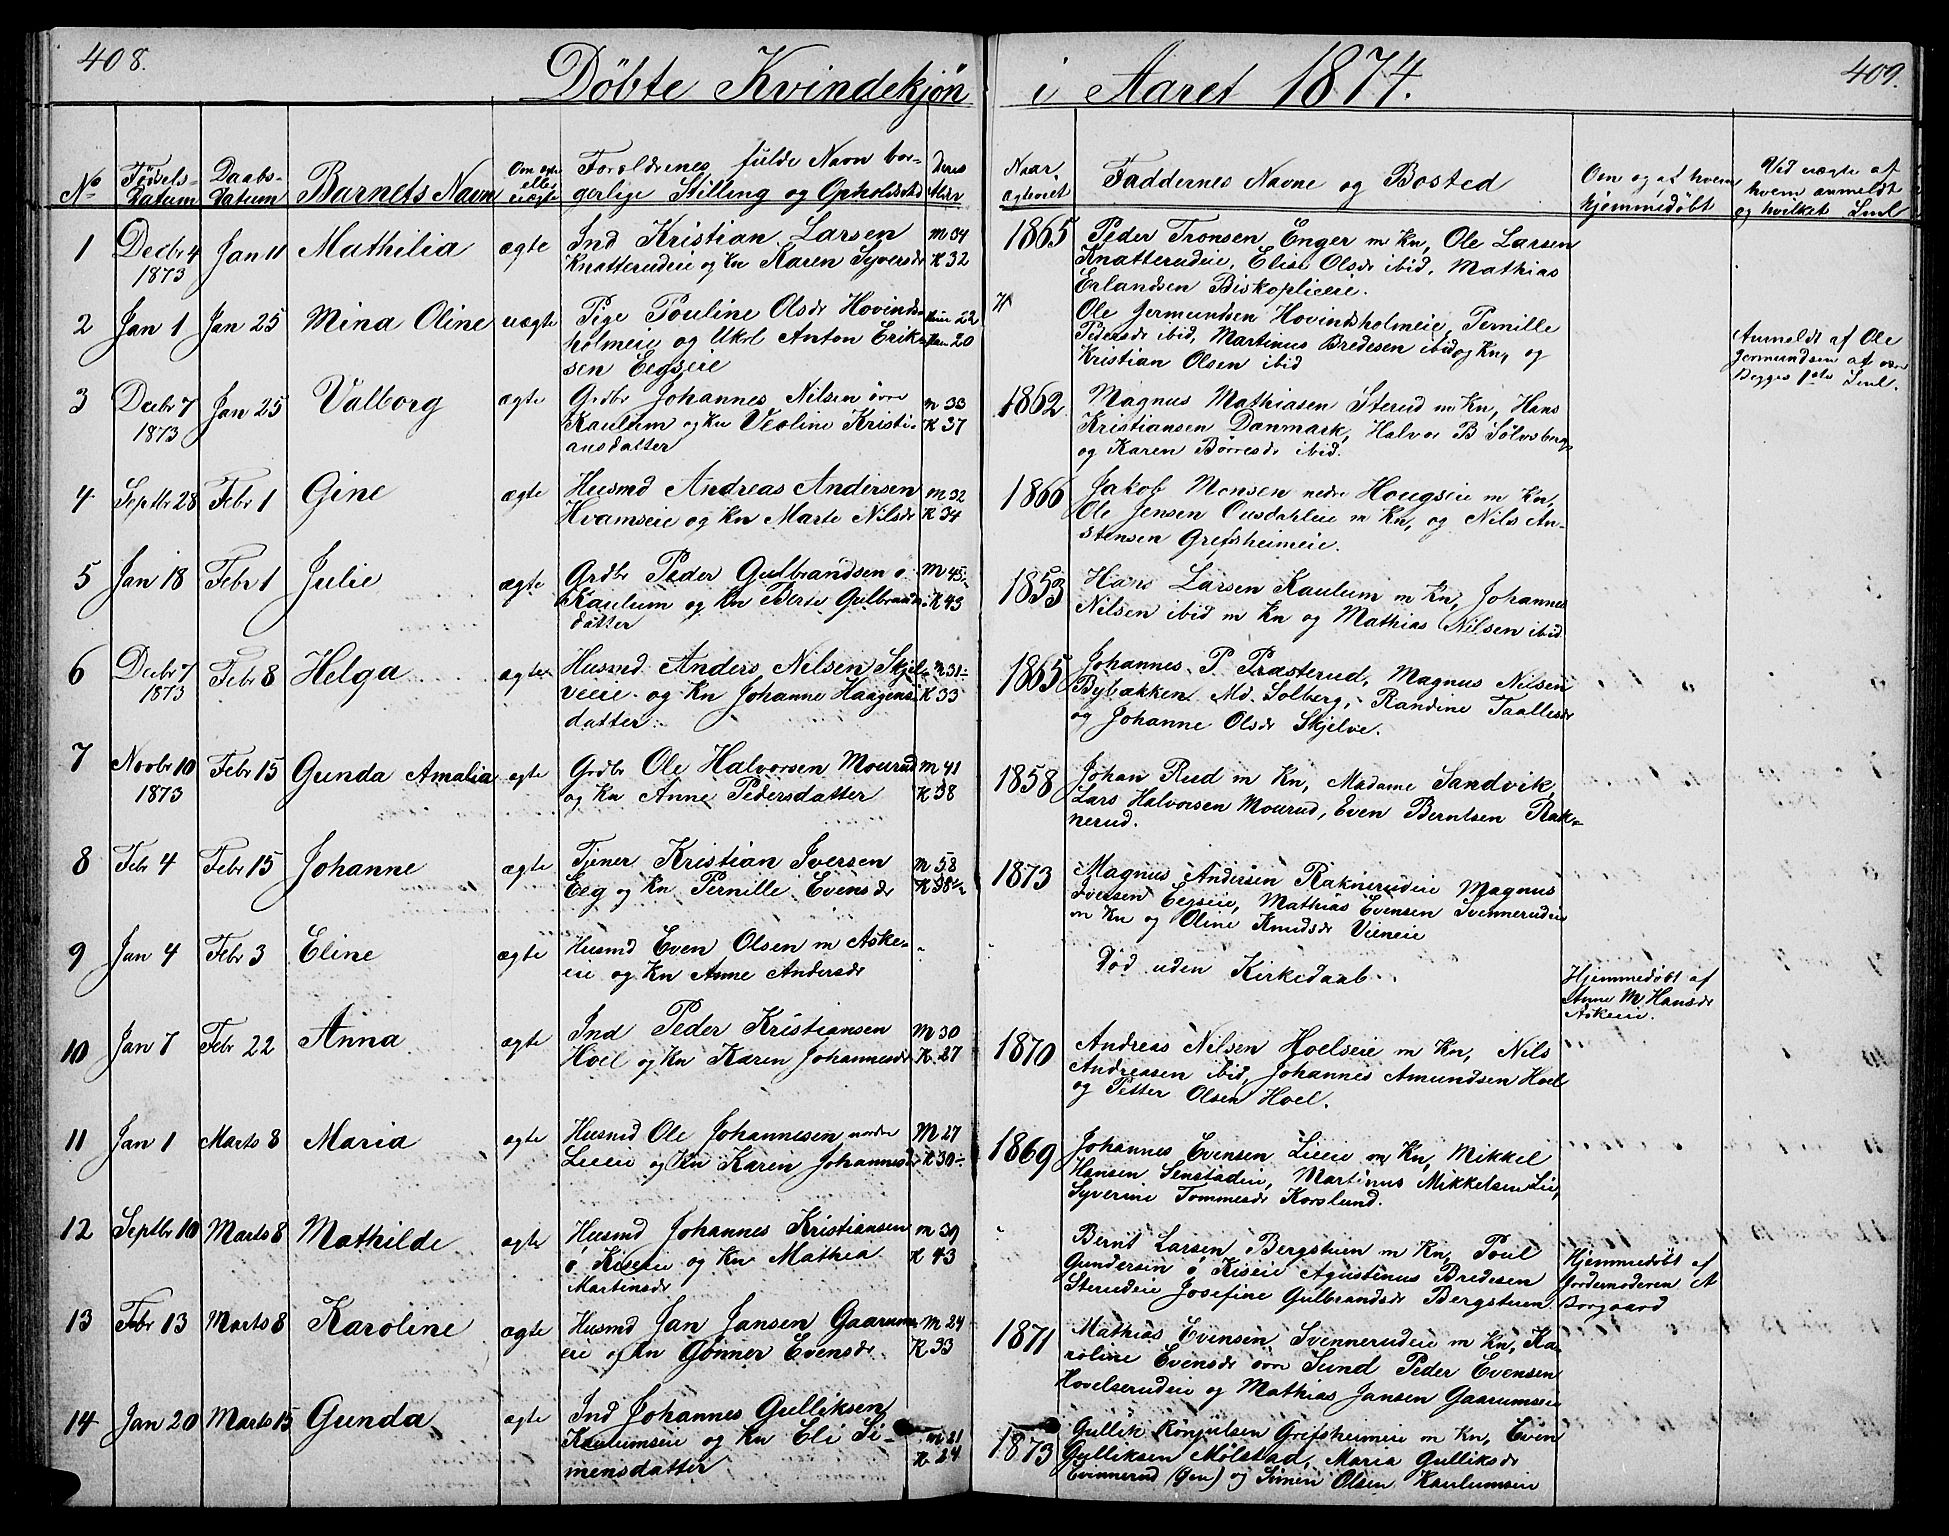 408.
Döbte Kvindekjön
i Aaret 1874.
409.
No
Födsels-
Datum
Daabs-
Datum
Barnets Navn
Om ægte
eller
uægte
Forældrenes fulde Navn bor-
gerlige Stilling og Opholdssted
Deres
Alder
Naar
ægteviet
Faddernes Navne og Bosted
Om og af hvem
hjemmedöbt
Ved uægte af
hvem anmeldt
og hvilket Leml
1 Decbr 4 Jan 11 Mathilia ægte Ind Kristian Larsen M 34 1865 Peder Tronsen Enger m Kn, Ole Larsen
1873 Knatterudeie og Kn Karen Syversdr K 32 Knatterudeie, Elise Olsdr ibid, Mathias
Erlandsen Biskoplieeie.
2 Jan 1 Jan 25 Mina Oline uægte Pige Pouline Olsdr Hovinds- 22 Ole Jermundsen Hovindsholmeie, Pernille
holmeie og Ukrl Anton Erik- 20 Pedersdr ibid, Martinus Bredesen ibid og Kn, og Anmeldt af Ole
sen Eegseie Kristian Olsen ibid Jermundsen af
Begges 1ste Leml.
3 Decbr 7 Jan 25 Valborg ægte Grdbr Johannes Nilsen övre M 33 1862 Magnus Mathiasen Sterud m Kn, Hans
1873 Kaulum og Kn Veoline Kristi- K 37 Kristiansen Danmark, Halvor B Sölvsberg
ansdatter og Karen Börresdr ibid.
4 Septbr 28 Febr 1 Gine ægte Husmd Andreas Andersen M 32 1866 Jakob Monsen nedre Hougseie m Kn,
Hvamseie og Kn Marte Nilsdr K 34 Ole Jensen Ousdahleie m Kn, og Nils An-
stensen Grefsheimeie.
5 Jan 18 Febr 1 Julie ægte Grdbr Peder Gulbrandsen ö M 45 1853 Hans Larsen Kaulum m Kn, Johannes
Kaulum og Kn Berte Gulbrands- K 43 Nilsen ibid m Kn og Mathias Nilsen ibid
datter
6 Decbr 7 Febr 8 Helga ægte Husmd Anders Nilsen Skjel- M 31 1865 Johannes P. Præsterud, Magnus Nilsen
1873 veeie og Kn Johanne Haagens- K 33 Bybakken Md. Solberg, Randine Taallesdr
datter og Johanne Olsdr Skjelve.
7 Novbr 10 Febr 15 Gunda Amalia ægte Grdbr Ole Halvorsen Mourud M 41 1858 Johan Rud m Kn, Madame Sandvik,
1873 og Kn Anne Pedersdatter K 38 Lars Halvorsen Mourud, Even Berntsen Rak-
nerud.
8 Febr 4 Febr 15 Johanne ægte Tjener Kristian Iversen M 58 1873 Magnus Andersen Raknerudeie Magnus
Eeg og Kn Pernille Evensdr K 38½ Iversen Eegseie, Mathias Evensen Svennerudeie
m Kn og Oline Knudsdr Vieneie
9 Jan 4 Febr 3 Eline ægte Husmd Even Olsen m Aske- Död uden Kirkedaab. Hjemmedöbt af
eie og Kn Anne Andersdr Anne M Hansdr
Askeeie.
10 Jan 7 Febr 22 Anna ægte Ind Peder Kristiansen M 30 1870 Andreas Nilsen Hoelseie m Kn, Nils
Hoel og Kn Karen Johannesdr K 27 Andreassen ibid, Johannes Amundsen Hoel
og Petter Olsen Hoel.
11 Jan 1 Marts 8 Maria ægte Husmd Ole Johannesen nordre M 27 1869 Johannes Evensen Lieeie m Kn, Mikkel
Lieeie og Kn Karen Johannesdr K 30 Hansen Senstadeie, Martinus Mikkelsen Lie,
Syverine Tommesdr Korslund.
12 Septbr 10 Marts 8 Mathilde ægte Husmd Johannes Kristiansen M 39 Bernt Larsen Bergstuen m Kn, Poul
ö Kiseeie og Kn Mathea K 43 Gundersen ö Kiseie Agustinus Bredesen Hjemmedöbt af
Martinsdr Sterudeie Josefine Gulbrandsdr Bergstuen. Jordemoderen A
Borgaard
13 Febr 13 Marts 8 Karoline ægte Husmd Jan Jansen Gaarums- M 24 1871 Mathias Evensen Svennerudeie m Kn, Ka-
eie og Kn Gönner Evensdr K 33 roline Evensdr Sund Peder Evensen
Hovelsrudeie og Mathias Jansen Gaarumseie
14 Jan 20 Marts 15 Gunda ægte Ind Johannes Gulliksen M 21 1873 Gullik Rönjulsen Grefsheimeie m Kn, Even
Kaulumseie og Kn Eli Si- K 24 Gulliksen Mölstad, Maria Gulliksdr
mensdatter Evinnerud (Gen) og Simen Olsen Kaulumseie